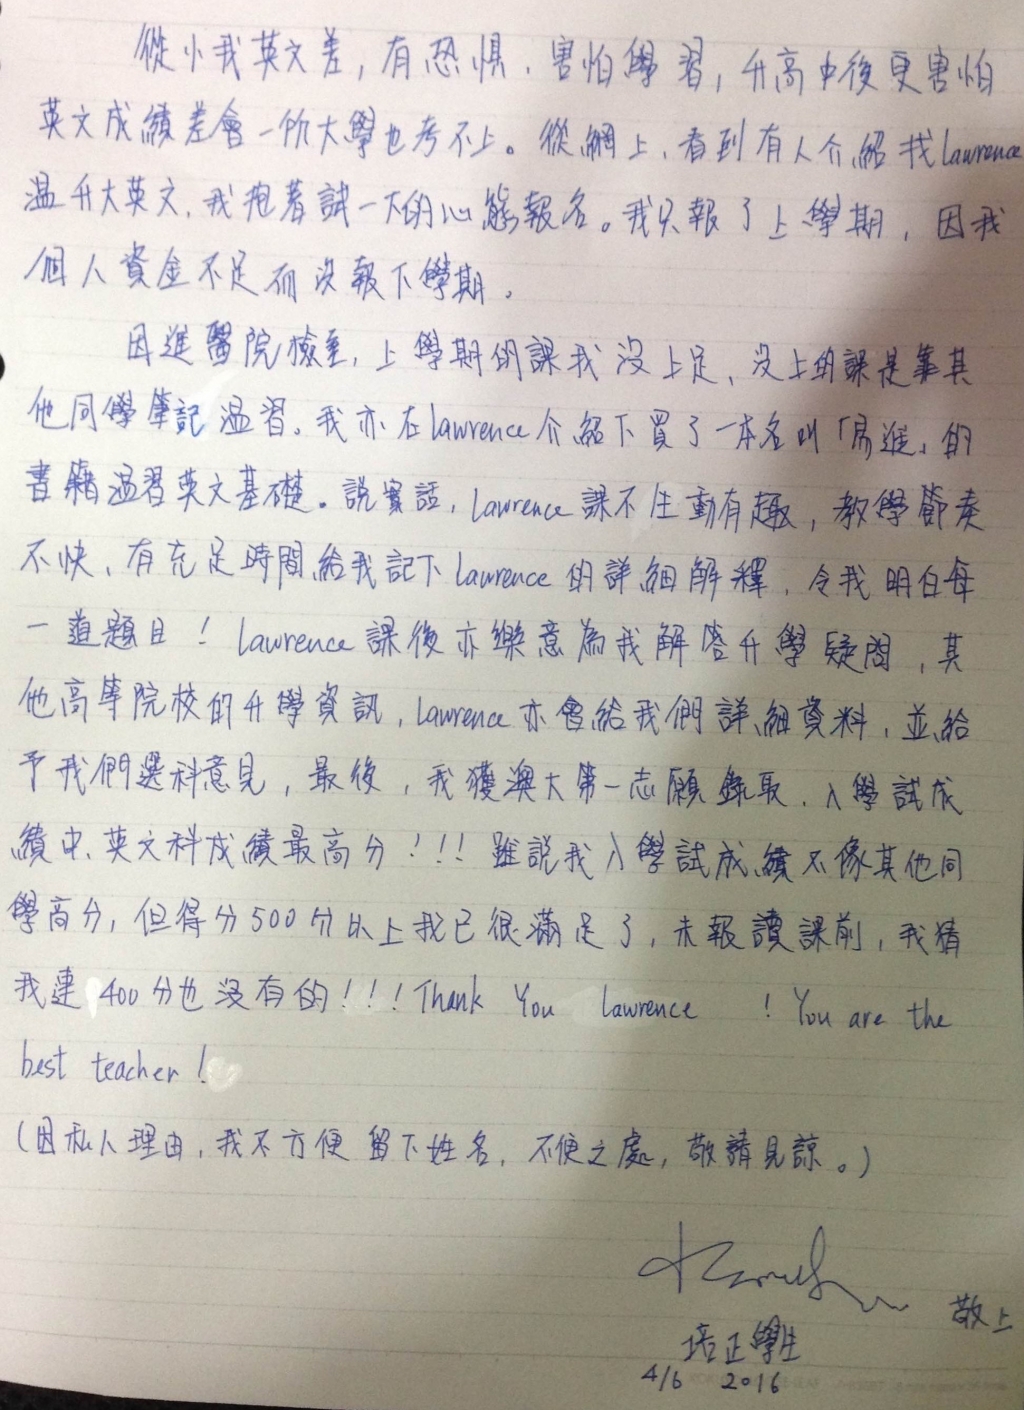 從小我英文差,有恐惧、害怕學習,升高中後更害怕
英文成績差會一所大學也考不上。從網上,看到有人介紹找lawrence
温升大英文,我抱着試一下的心態報名。我只報了上學期,因我
個人資金不足而没報下學期。
因進醫院檢查,上學期的課我没上足,没上的課是靠其
他同學筆記温習。我亦在lawrence介紹下買了一本名叫「易進」的
書籍温習英文基礎。說實話,lawrence課不生動有趣,教學節奏
不快,有充足時間給我記下lawrence的詳細解釋,令我明白每
一道題目!lawrence課後亦樂意為我解答升學疑問,其
他高等院校的升學資訊,lawrence亦會給我們詳細資料,並給
予我們選科意見,最後,我獲澳大第一志願錄取,入學試成
績中,英文科成績最高分!!!雖說我入學試成績不像其他同
學高分,但得分500分以上我已很滿足了,未報讀課前,我猜
我連400分也没有的!!!Thank You lawrence ! You are the
best teacher!
(因私人理由,我不方便留下姓名,不便之處,敬請見諒。)
敬上
培正學生
4/6 2016